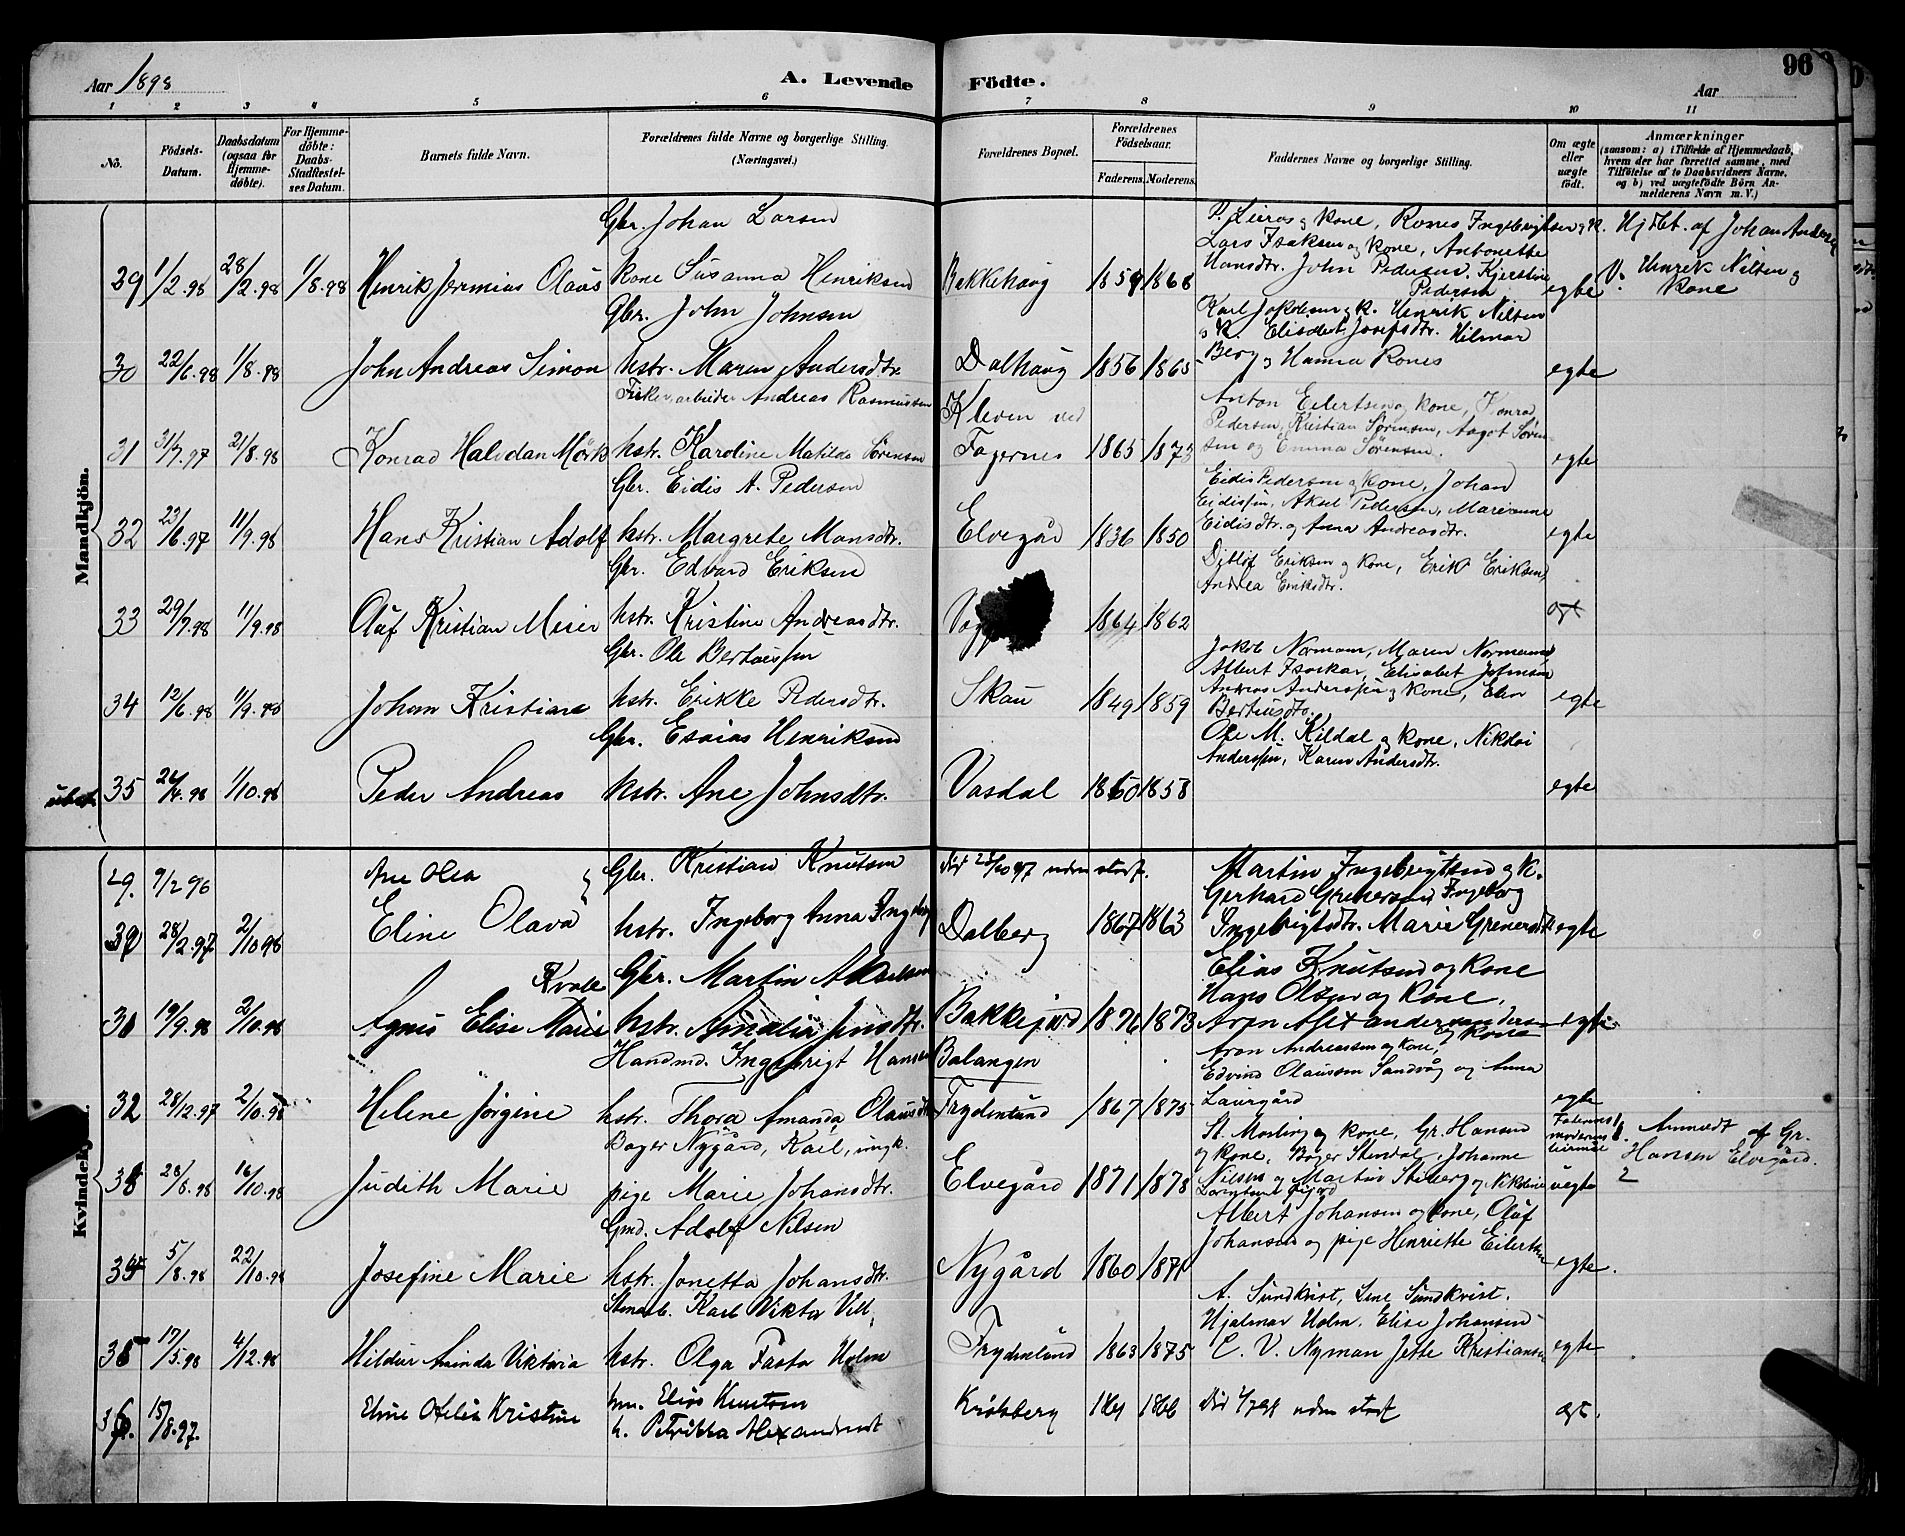 Aar 1898
A. Levende Födte.
96
Aar
1 2 3 4 5 6 7 8 9 10 11
No.
Födsels-Datum.
Daabsdatum (ogsaa for Hjemme-døbte).
For Hjemme-døbte: Daabs-Stadfæstel-ses Datum.
Barnets fulde Navn.
Forældrenes fulde Navne og borgerlige Stilling. (Næringsvei.)
Forældrenes Bopæl.
Forældrenes Födselsaar.
Faderens. Moderens.
Faddernes Navne og borgerlige Stilling.
Om ægte eller uægte født.
Anmærkninger
(saasom: a) i Tilfælde af Hjemmedaab, hvem der har forrettet samme, med Tilföielse af to Daabsvidners Navne, og b) ved uægtefødte Börn An-melderens Navn m. V.)
Mandkjön.
Gbr. Johan Larsen
39 1/2.98 28/2.98 1/8.98 Henrik Jermias Olaus kone Susanna Henriksen
Bekkehaug 1859 1868
Lars Isaksen og kone, Antonette
Hansdtr. John Pedersen, Kjerstine
Pedersen egte
Hjdbt. af Johan
V: Henrik Nilsen og kone
Gbr. John Johnsen
30 22/6.98 1/8.98 John Andreas Simon hstr. Maren Andersdtr.
Dalhaug 1856 1865
Henrik Nilsen
Hilmar
Berg og Hanna Rones egte
arbeider Andreas Rasmussen
31 31/7.97 21/8.98 Konrad Halvdan Mørk hstr. Karoline Matilde Sørensen
Kleven ved
Fagernes 1865 1873
Anton Eilertsen og kone, Konrad
Pedersen, Kristian Sørensen, Aagot Søren-
sen og Emma Sørensen. egte
Gbr. Eidis A. Pedersen
32 23/6.97 11/9.98 Hans Kristian Adolf hstr. Margrete Monsdtr.
Elvegård 1836 1850
Eidis Pedersen og kone, Johan
Eidissen, Aksel Pedersen, Marianne
Eidisdtr. og Anna Andreasdtr. egte
Gbr. Edvard Eriksen
33 29/7.98 11/9.98 Olaf Kristian Meier hstr. Kristine Andreasdtr.
1864 1862
Ditløf Eriksen og kone, Erik Eriksen,
Andrea Eriksdtr.
Gbr. Ole
34 12/6.98 11/9.98 Johan Kristian hstr. Erikke Pedersdtr.
Skau 1849 1859
Jakob Normann, Maren Normann,
Albert Isaksen, Elisabet
og kone, Elen egte
Gbr. Esaias Henriksen
35 24/4.98 1/10.98 Peder Andreas hstr. Ane Johnsdtr.
Vasdal 1860 1858
Ole M. Kildal og kone, Nikolai
Anderssen, Karen Andersdtr. egte
Kvindekjøn.
29. 9/2 96 Ane Olea Gbr. Kristian Knutsen
Død 28/10 97 uden stadf.
Martin Ingebrigtsen og k.
30 28/2.97 2/10.98 Eline Olava hstr. Ingeborg Anna
Dalberg 1867 1863
Gerhard Grenersen, Ingeborg
Ingebrigtsdtr. Marie Grenersdtr. egte
31 19/9.98 2/10.98 Agnes Elise Marie Kvale Gbr. Martin Akselsen
hstr. Amalia Jensdtr.
Bakkejord 1876 1873
Elias Knutsen og kone
Hans Olsen og kone,
Aron Alexandersen
og kone egte
Handmd. Ingebrigt Hansen
32 28/12.97 2/10.98 Helene Jörgine hstr. Thora Amanda Olausdtr.
Balangen
Frydenlund 1867 1875
Aron Andreassen og kone,
Edvind Olaussen Sandvåg og Anna
Laurgård egte
Bager Nygård, Karl, ungk.
33 28/6.98 16/10.98 Judith Marie pige Marie Johansdtr.
Elvegård 1871 1878
St. Mosling og kone, Gr. Hansen
og kone, Bager Stendal, Johanne
Nilsen og Martin uegte
Faderens
moderens
Anmeldt af Gr.
Hansen Elvegård.
2
Gmd. Adolf Nilsen
34 5/8.98 22/10.98 Josefine Marie hstr. Jonetta Johansdtr.
Nygård 1860 1871
Albert Johansen og kone, Olaf
Johansen og pige Henriette Eilertsen egte.
Karl Viktor
35 17/5.98 4/12.98 Hildur Aminda Viktoria hstr. Olga Fasta Holm
Frydenlund 1863 1875
A. Sundkvist, Lene Sundkvist,
Hjalmar Holm, Elise Johansen
C. V. Nyman Jette Kristiansen egte
36. 15/8.97. Eline Otelie Kristine Elias Knutsen
h. Petrikka Alexandersdt
Kråkberg 1866 Död uden stadf ægt.